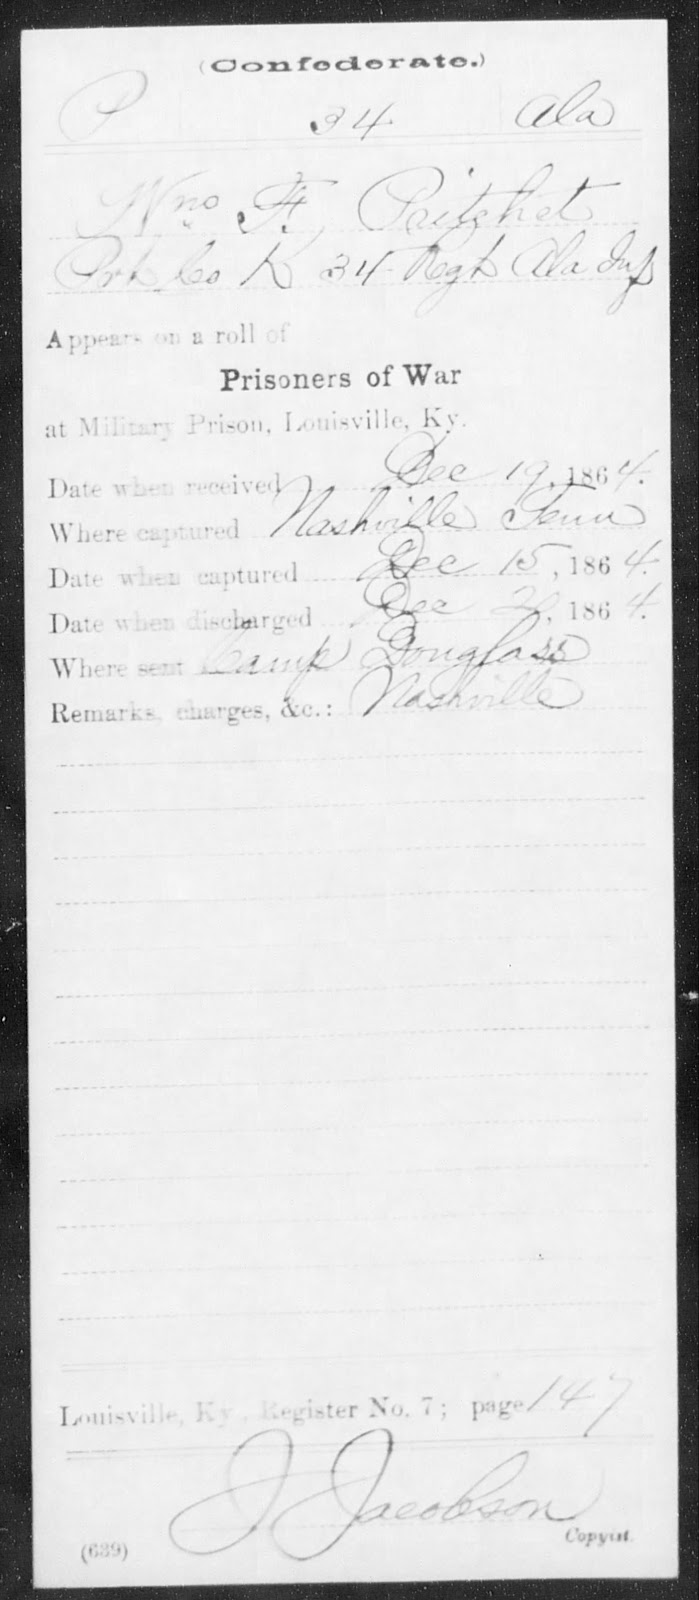 (Confederate.)
P 34 Ala
Wm F. Pritchet
Pvt Co K 34 Regt Ala Inf
Appears on a roll of
Prisoners of War
at Military Prison, Louisville, Ky.
Date when received Dec 19, 1864.
Where captured Nashville Tenn
Date when captured Dec 15, 1864.
Date when discharged Dec , 1864.
Where sent Camp Douglass
Remarks, charges, &c.: Nashville
Louisville, Ky., Register No. 7; page 147
J Jacobson
Copyist.
(639)